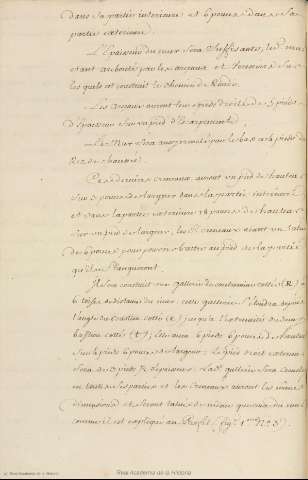 dans sa partie interieure et 6 pouces dans sa
partie exterieure.
L'Epaisseur du mur sera suffisante, les
etant arcboutés par les arceaux et terrasse sur
lesquels est construit le chemin de Ronde
Les arceaux auront leur pieds droits de 3 pieds
d'Epaisseur sur un pied d'Empatement.
Le Mur sera par le bas a 4 pieds du
Rez de chaussée.
Ces derniers creneaux, auront un pied de hauteur
sur 3 pouces de largeur dans la partie interieure
et dans la partie exterieure 18 pouces de hauteur
sur un pied de largeur, les creneaux aiant un talus
de 6 pouces pour pouvoir battre au pied de la partie
qu'ils flanqueront.
Il sera construit une gallerie de contremine cottée (R) a
toises de distance du mur: cette gallerie s'etendra depuis
l'angle du Bastion cotté (x) jusqu'a l'extremité du demy
bastion cotté (t); elle aura 6 pieds 6 pouces de hauteur
sur 4 pieds 6 pouces de largeur: le pied droit exterieur
sera de 3 pieds d'Epaisseur. La gallerie sera
en toutes ses parties et les creneaux auront les mêmes
dimensions et seront talués de même que ceux du mur
comme il est expliqué au Profil (fig. 1ere No 3)
Real Academia de la Historia